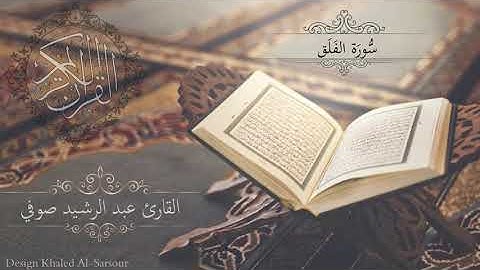 سُّورَة الفَلَق
القرآن الكريم
القارئ عبد الرشيد صوفي
Design Khaled Al-Sarsour